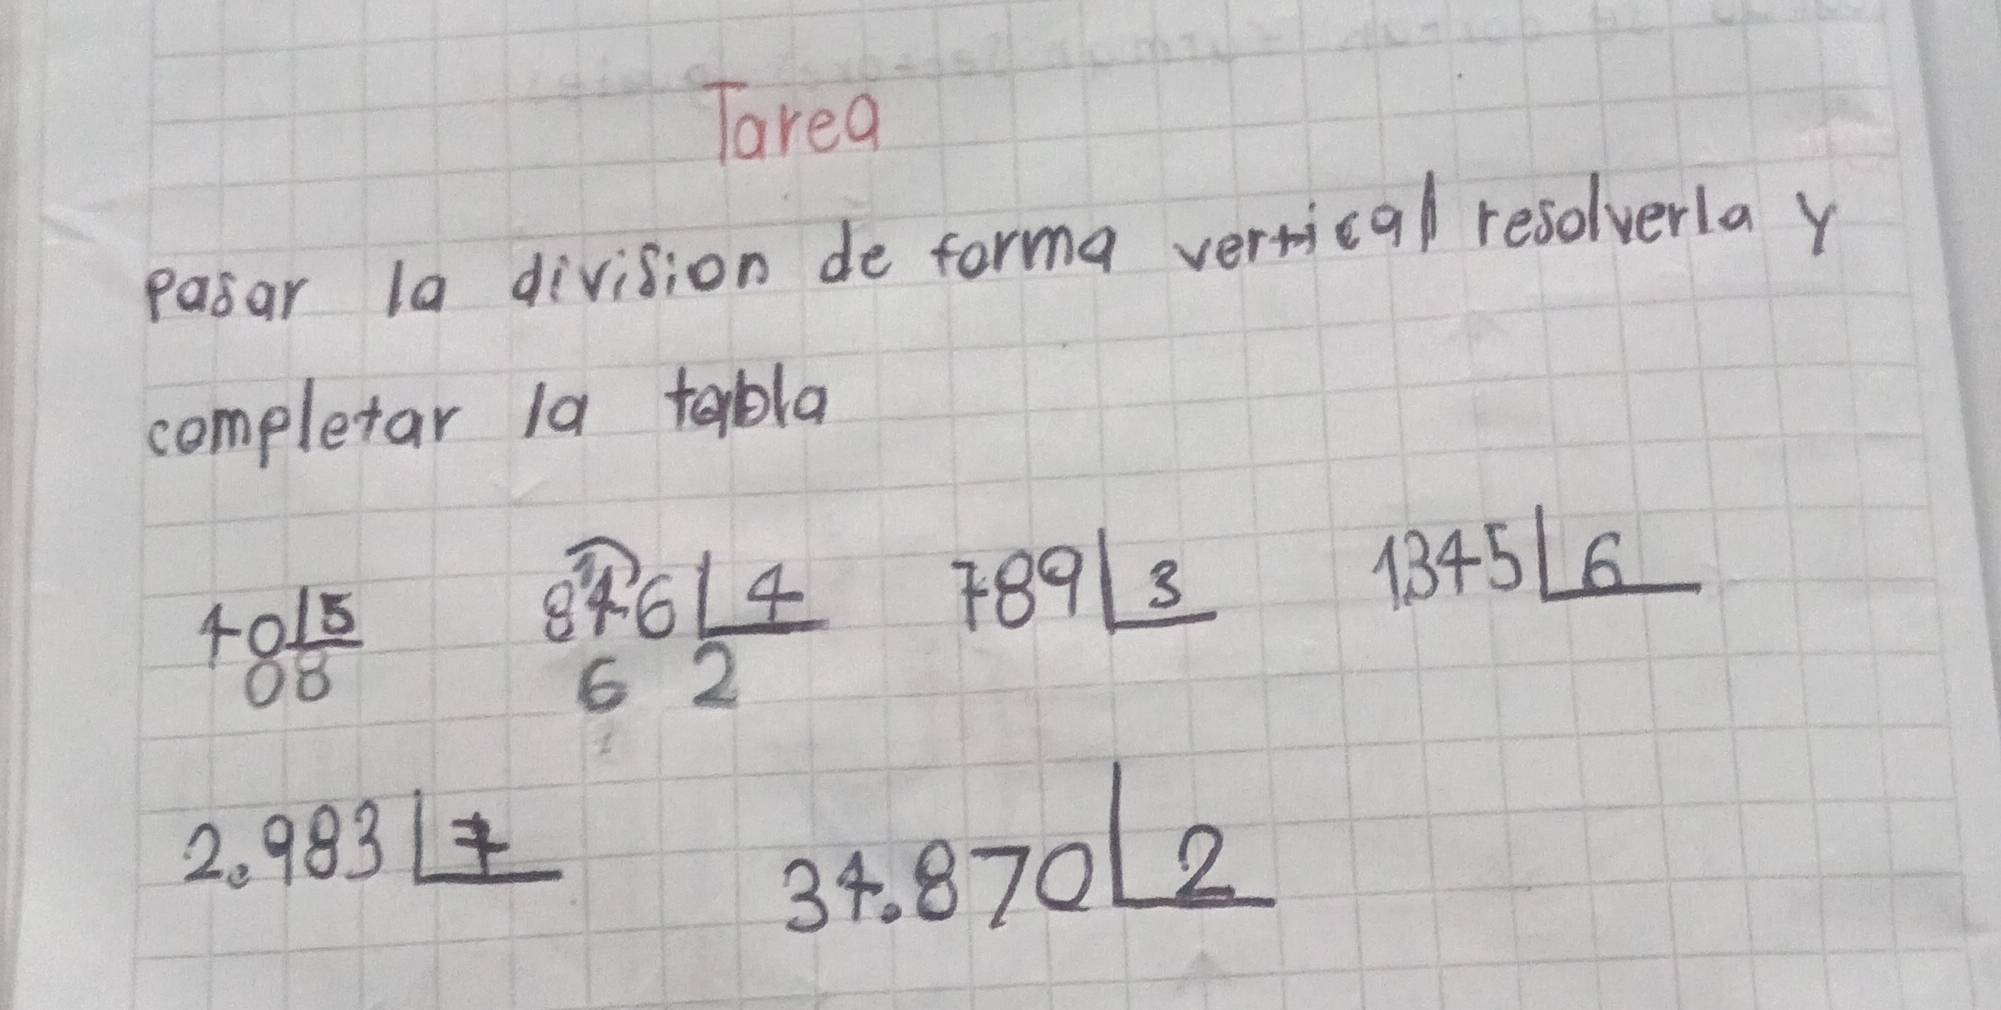 Tarea
Pasar la division de forma vertical resolverla y
completar la tabla
40 5
08
876 4
6 2
789 3
1345 6
2.983 7
34.870 2